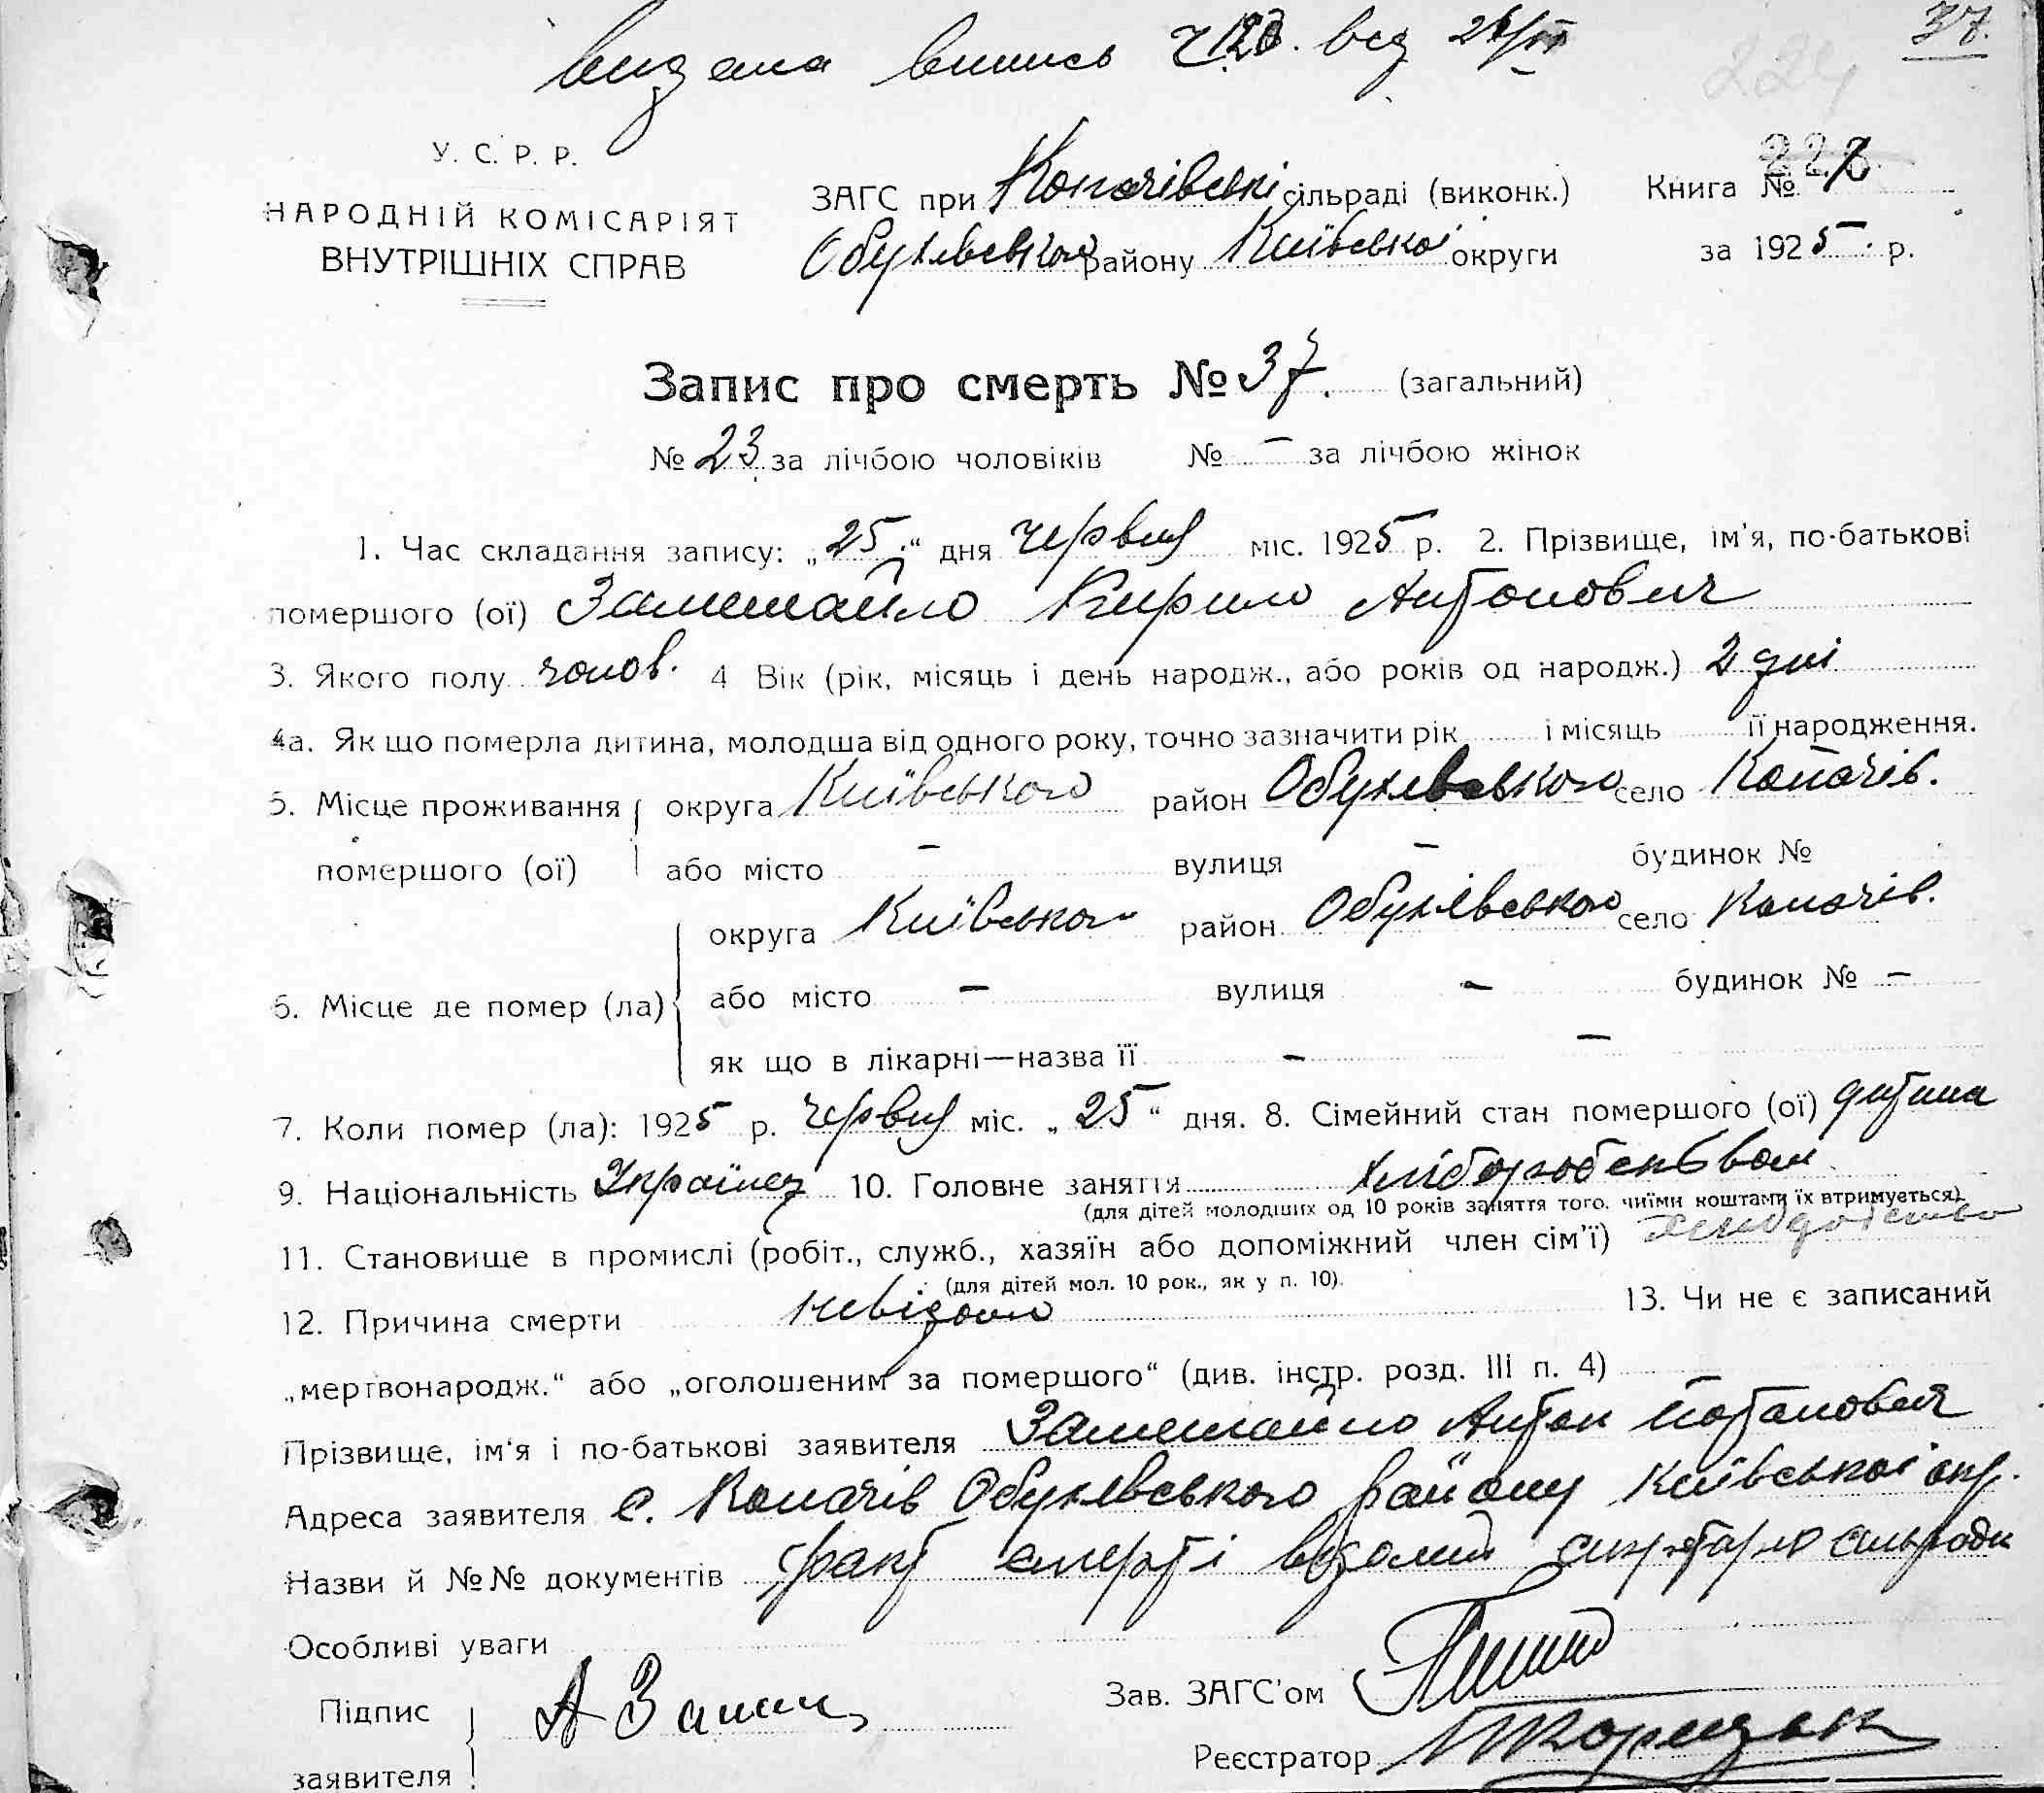 видана випись Ч 120. від 28/VI
37.
224
У. С. Р. Р.
НАРОДНІЙ КОМІСАРІЯТ
ВНУТРІШНІХ СПРАВ
ЗАГС при Копачівські сільраді (виконк.)
Обухівського району Київської округи
Книга №
за 1925 р.
Запис про смерть № 37. (загальний)
№ 23 за лічбою чоловіків № – за лічбою жінок
1. Час складання запису: „25“ дня червня міс. 1925 р. 2. Прізвище, ім'я, по-батькові
помершого (ої) Замешайло Кирило Антонович
3. Якого полу чолов. 4 Вік (рік, місяць і день народж., або років од народж.) 2 дні
4а. Як що померла дитина, молодша від одного року, точно зазначити рік і місяць її народження.
5. Місце проживання округа Київського район Обухівського село Копачів.
помершого (ої) або місто – вулиця – будинок №
округа Київського район Обухівського село Копачів.
6. Місце де помер (ла) або місто – вулиця – будинок № –
як що в лікарні—назва її – –
7. Коли помер (ла): 1925 р. червня міс. „25“ дня. 8. Сімейний стан помершого (ої) дитина
9. Національність Українец 10. Головне заняття хліборобством
(для дітей молодших од 10 років заняття того, чиїми коштами їх втримується).
11. Становище в промислі (робіт., служб., хазяїн або допоміжний член сім'ї)
(для дітей мол. 10 рок., як у п. 10).
12. Причина смерти невідома 13. Чи не є записаний
„мертвонародж.“ або „оголошеним за помершого“ (див. інстр. розд. III п. 4)
Прізвище, ім'я і по-батькові заявителя Замешайло Антон Потапович
Адреса заявителя с. Копачів Обухівського району Київської окр.
Назви й №№ документів факт смерті відомий секретарю сільради
Особливі уваги
Підпис заявителя А Замеш
Зав. ЗАГС'ом
Реєстратор